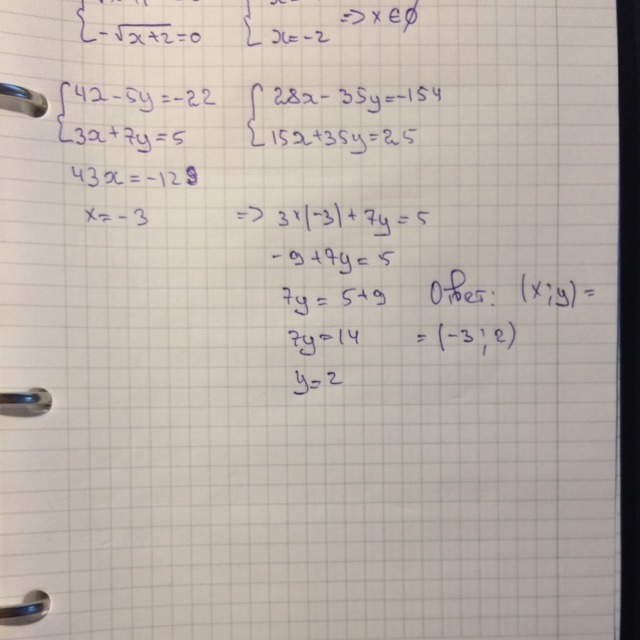 -√x+2=0 x=-2 => x∈∅
4x-5y=-22 28x-35y=-154
3x+7y=5 15x+35y=25
43x=-129
x=-3 => 3*(-3)+7y=5
-9+7y=5
7y=5+9 Ответ: (x;y)=
7y=14 =(-3;2)
y=2